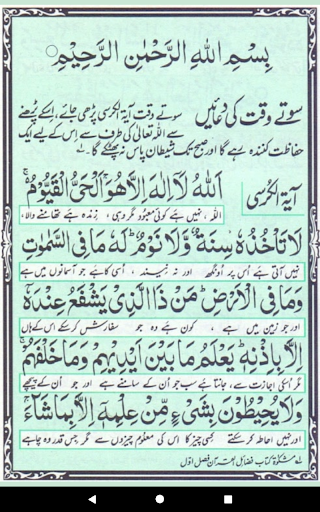 بِسْمِ اللهِ الرَّحْمٰنِ الرَّحِيْمِ
سوتے وقت کی دعائیں
سوتے وقت آیۃ الکرسی پڑھی جائے، اسکے پڑھنے
سے اللہ تعالیٰ کی طرف سے اس کے لیے ایک
حفاظت کنندہ رہے گا اور صبح تک شیطان پاس نہ پھٹکے گا۔ لے
آیۃ الکرسی
اَللهُ لَآ اِلٰهَ اِلَّا هُوَ ۚ اَلْحَيُّ الْقَيُّوْمُ ۚ
اللہ، نہیں ہے کوئی معبود مگر وہی، زندہ ہے تھامنے والا،
لَا تَاْخُذُهٗ سِنَةٌ وَّلَا نَوْمٌ ؕ لَهٗ مَا فِى السَّمٰوٰتِ
نہیں آتی ہے اُس پر اُونگھ اور نہ نیند، اُسی کا ہے جو آسمانوں میں ہے
وَمَا فِى الْاَرْضِ ؕ مَنْ ذَا الَّذِىْ يَشْفَعُ عِنْدَهٗٓ
اور جو زمین میں ہے، کون ہے وہ جو سفارش کر سکے اس کے ہاں
اِلَّا بِاِذْنِهٖ ؕ يَعْلَمُ مَا بَيْنَ اَيْدِيْهِمْ وَمَا خَلْفَهُمْ ۚ
مگر اُسکی اجازت سے، جانتا ہے سب جو اُن کے سامنے ہے اور جو اُن کے پیچھے
وَلَا يُحِيْطُوْنَ بِشَىْءٍ مِّنْ عِلْمِهٖٓ اِلَّا بِمَا شَآءَ ۚ
اور نہیں احاطہ کر سکتے کسی چیز کا اس کی معلوم چیزوں سے مگر جس قدر وہ چاہے
لے مشکوٰۃ کتاب فضائل القرآن فصل اوّل